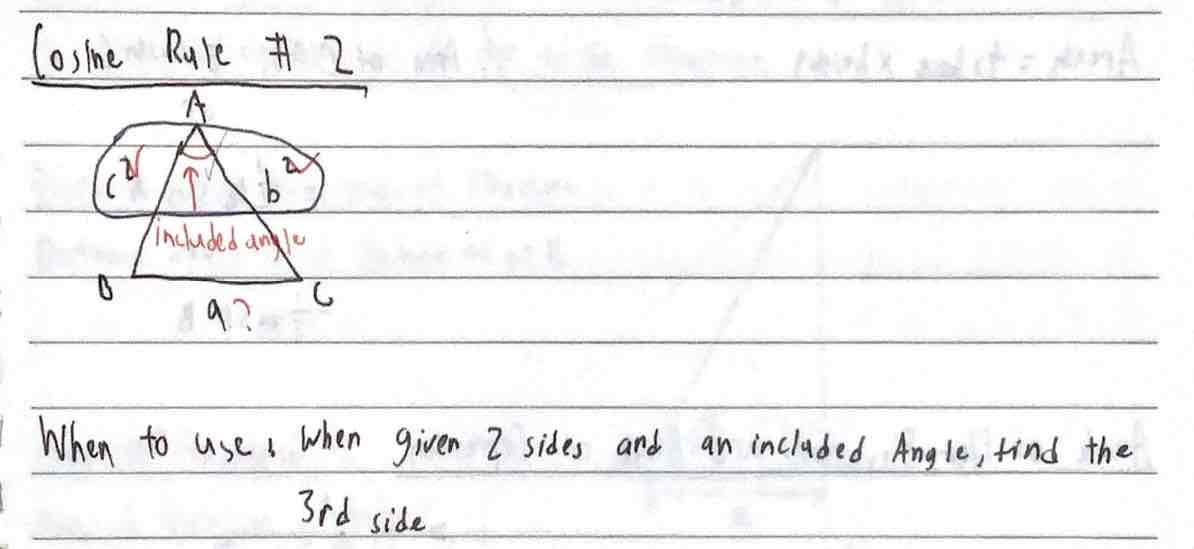 Cosine Rule # 2
A
c²
b²
included angle
B
C
a?
When to use: When given 2 sides and an included Angle, find the
3rd side